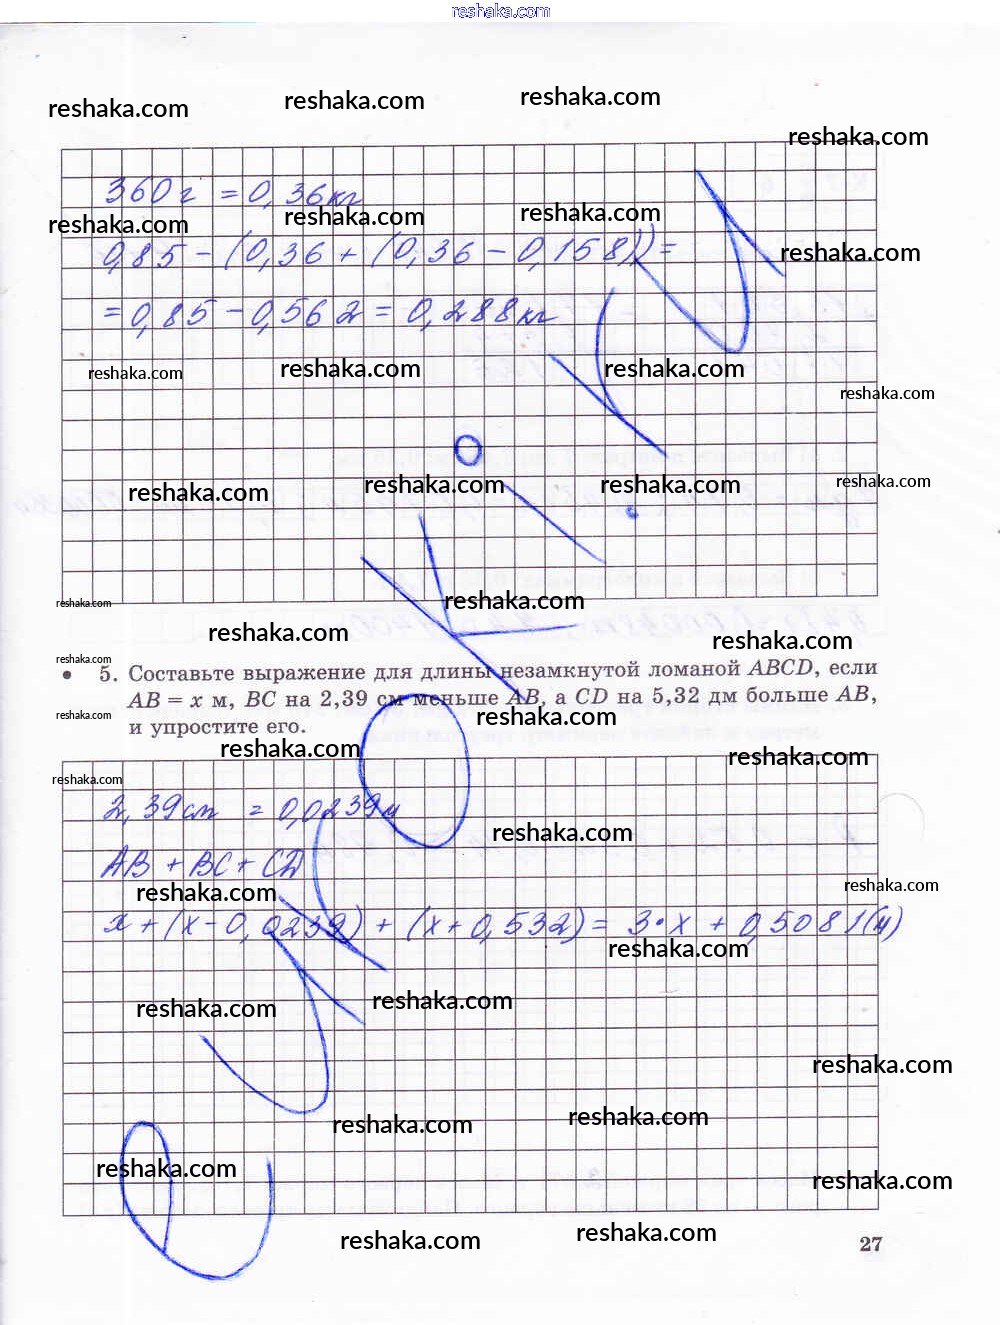 reshaka.com
reshaka.com reshaka.com reshaka.com reshaka.com
360 г = 0,36 кг
reshaka.com reshaka.com reshaka.com reshaka.com
0,85 - (0,36 + (0,36 - 0,158)) =
= 0,85 - 0,562 = 0,288 кг
reshaka.com reshaka.com reshaka.com reshaka.com
reshaka.com reshaka.com reshaka.com reshaka.com
reshaka.com reshaka.com reshaka.com reshaka.com
• 5. Составьте выражение для длины незамкнутой ломаной ABCD, если
reshaka.com
AB = x м, BC на 2,39 см меньше AB, а CD на 5,32 дм больше AB,
reshaka.com reshaka.com
и упростите его.
reshaka.com reshaka.com reshaka.com
2,39 см = 0,0239 м
reshaka.com
AB + BC + CD
reshaka.com reshaka.com
x + (x - 0,0239) + (x + 0,532) = 3·x + 0,5081 (м)
reshaka.com
reshaka.com reshaka.com
reshaka.com
reshaka.com reshaka.com
reshaka.com reshaka.com
reshaka.com reshaka.com
27